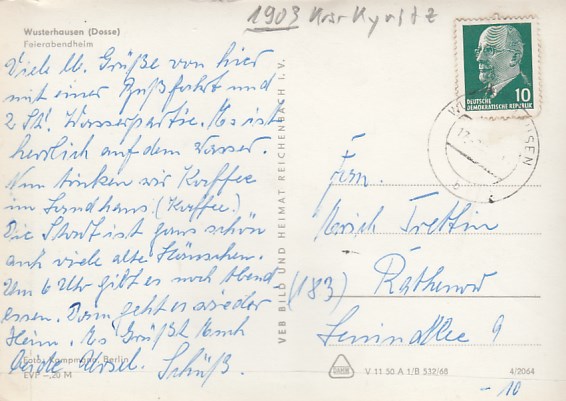 1903 Krsr Kyritz
Wusterhausen (Dosse)
Feierabendheim
Viele lb. Grüße von hier
mit einer Fußfahrt und
2 St. Wasserpartie. Es ist
herrlich auf dem Wasser.
Nun trinken wir Kaffee
im Landhaus. (Kaffee)
Die Stadt ist ganz schön
auch viele alte Häuschen.
Um 6 Uhr gibt es noch Abend
essen. Dann geht es wieder
Heim. Es Grüßt Euch
beide Ursel.
Foto: Kampmann, Berlin
EVP –,20 M
VEB BILD UND HEIMAT REICHENBACH I. V.
10
DEUTSCHE
DEMOKRATISCHE REPUBLIK
Fam.
Erich Trettin
(183) Rathenow
Leninallee 9
V 11 50 A 1/B 532/68
4/2064
-10